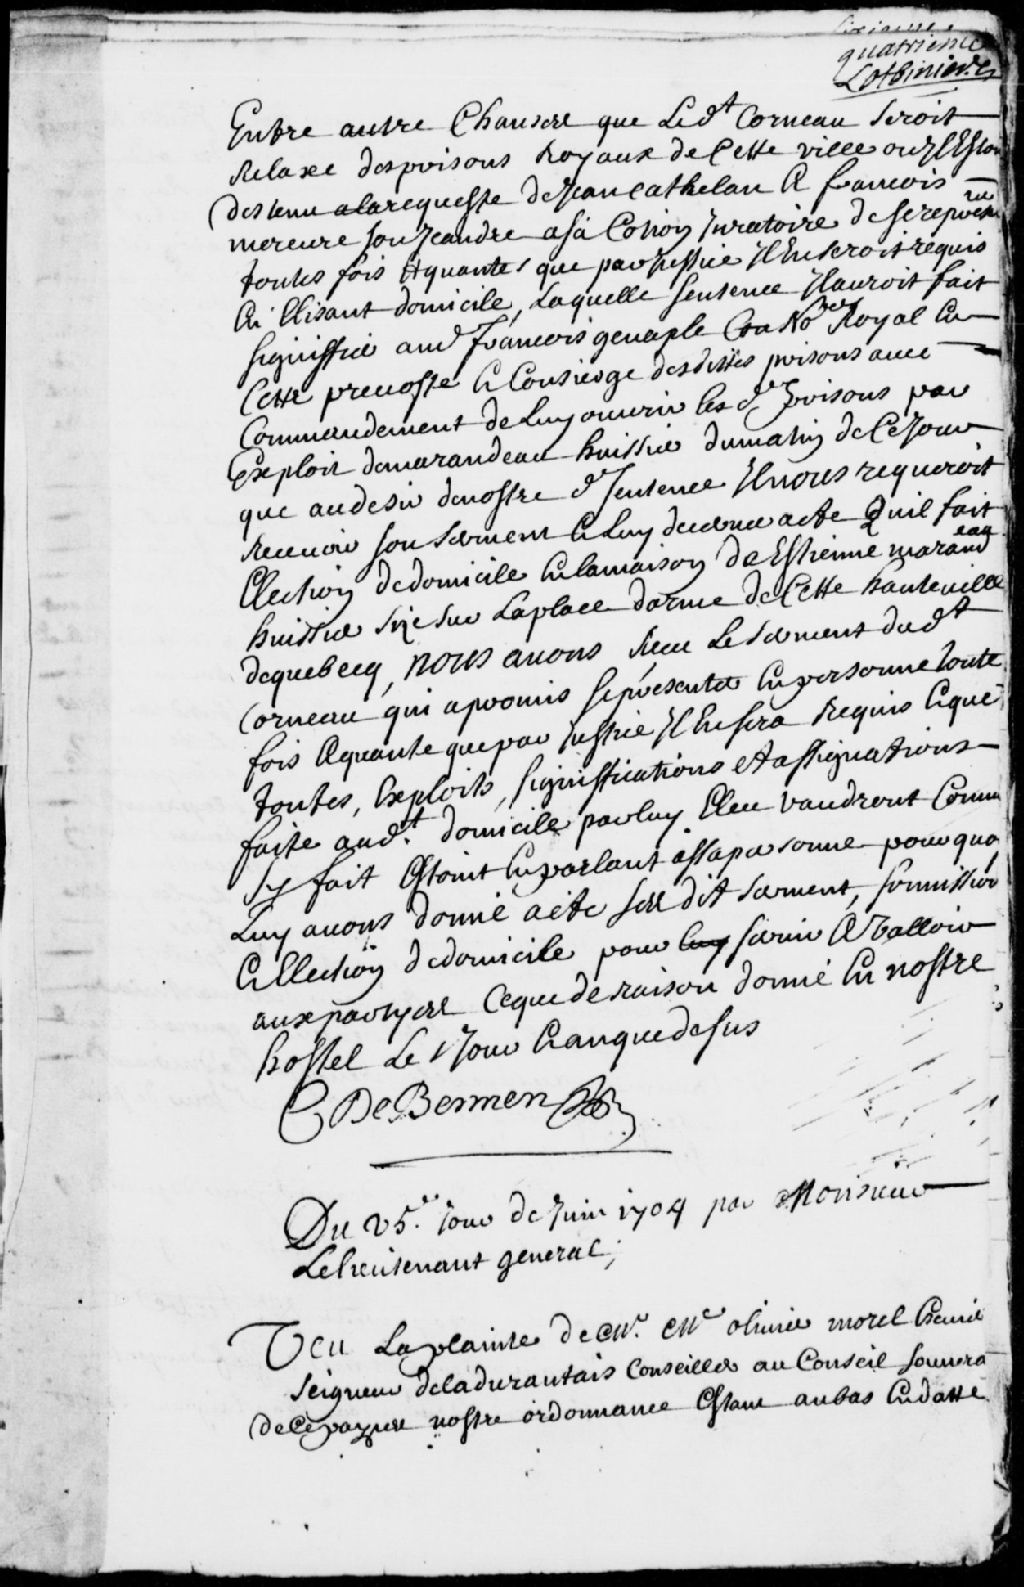 quatrieme
Lotbiniere
Entre autre Chouses que Led^t Corneau seroit
Relaxé des prisons Royaux de Cette ville ou Il Estoit
destenu alarequeste de Jean Cathelan Et francois
mercure son Jeandre asa Cotion Juratoire de se representer
toutes fois Et quantes que par Justice Il En seroit requis
En Elisant domicile, Laquelle sentence Il auroit fait
signiffier aud^t francois genaple No^re Royal En
Cette prevosté Et Consierge desdittes prisons avec
Commandement de Luy ouvrir les d^e prisons par
Exploit de marandeau huissier du matin de Ce Jour
que au desir de nostre d^e sentence Il nous requeroit
Recevoir son serment Et Luy donner acte Quil fait
Election de domicile En la maison de Estienne marandeau
huissier size sur La place darme de Cette hauteville
de quebecq, nous avons Receu Le serment dud^t
Corneau qui a promis se presenter En personne toute
fois Et quante que par Justice Il En sera Requis Et que
toutes, Exploits, signiffications et assignations
faite aud^t domicile par luy Eleu vaudront Comme
sy fait Estoint En parlant assa personne pour quoy
Luy avons donné acte sesd dit serment, soumission
Et Election de domicile pour luy servir Et valloir
aux partyes Ceque de raison donné En nostre
hostel Le Jour Et an que dessus
C De Bermen
Du 25^e Jour de Juin 1704 par Monsieur
Le lieutenant general;
Veu La plainte de M^r. M^e olivier morel Escuier
seigneur de la durantais Conseiller au Conseil souvera
de Ce pays nostre ordonnance Estant au bas En datte